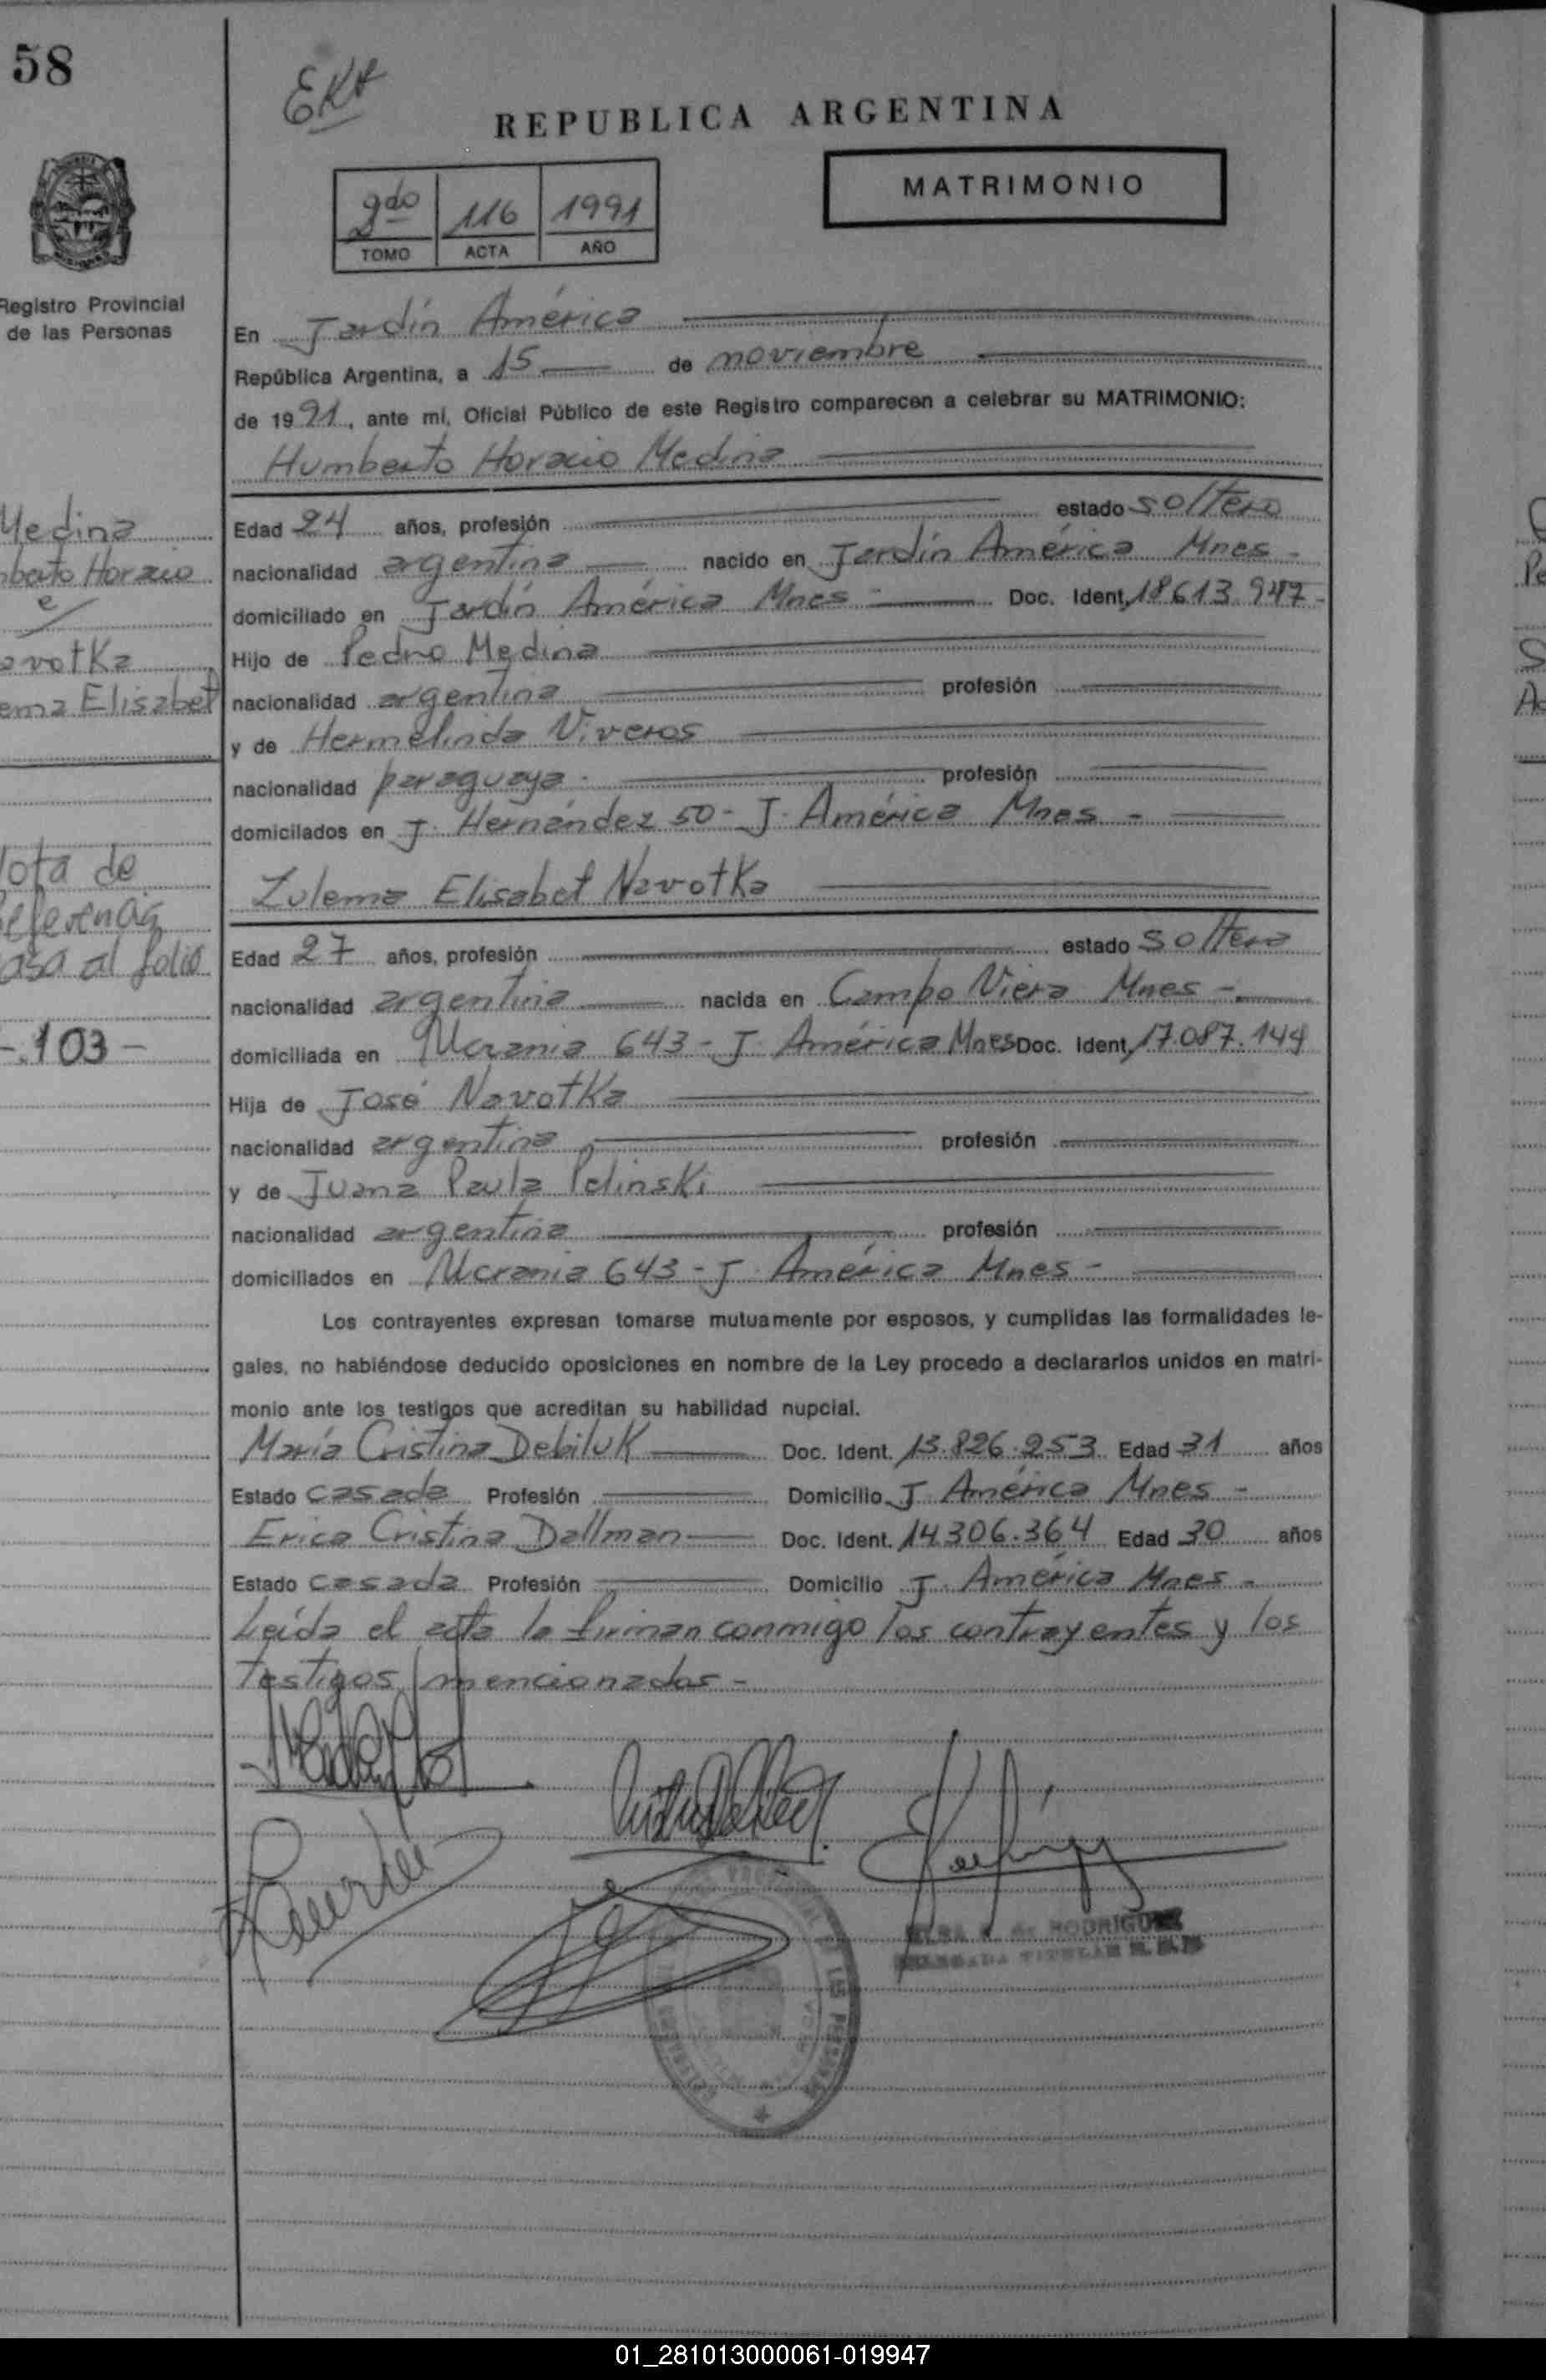 58
REPUBLICA ARGENTINA
MATRIMONIO
2do 116 1991
TOMO ACTA AÑO
Registro Provincial
de las Personas
En Jardín América
República Argentina, a 15 de noviembre
de 1991, ante mí, Oficial Público de este Registro comparecen a celebrar su MATRIMONIO:
Humberto Horacio Medina
Edad 24 años, profesión estado soltero
nacionalidad argentina nacido en Jardín América Mnes -
domiciliado en Jardín América Mnes - Doc. Ident. 18613.947-
Hijo de Pedro Medina
nacionalidad argentina profesión
y de Hermelinda Viveros
nacionalidad paraguaya - profesión
domicilados en J. Hernández 50 - J. América Mnes -
Zulema Elisabet Navotka
Edad 27 años, profesión estado soltera
nacionalidad argentina nacida en Campo Viera Mnes -
domiciliada en Ucrania 643 - J. América Mnes Doc. Ident. 17.087.144
Hija de José Navotka
nacionalidad argentina profesión
y de Juana Paula Pelinski
nacionalidad argentina profesión
domiciliados en Ucrania 643 - J. América Mnes -
Los contrayentes expresan tomarse mutuamente por esposos, y cumplidas las formalidades le-
gales, no habiéndose deducido oposiciones en nombre de la Ley procedo a declararlos unidos en matri-
monio ante los testigos que acreditan su habilidad nupcial.
María Cristina Debiluk Doc. Ident. 13.826.253 Edad 31 años
Estado casada Profesión Domicilio J. América Mnes -
Erica Cristina Dallman Doc. Ident. 14.306.364 Edad 30 años
Estado casada Profesión Domicilio J. América Mnes -
Leída el acta la firman conmigo los contrayentes y los
testigos mencionados -
RODRIGUEZ
TITULAR
Medina
berto Horacio
e/
avotka
ema Elisabet
ota de
eferencia
asa al folio
-.103-
01_281013000061-019947